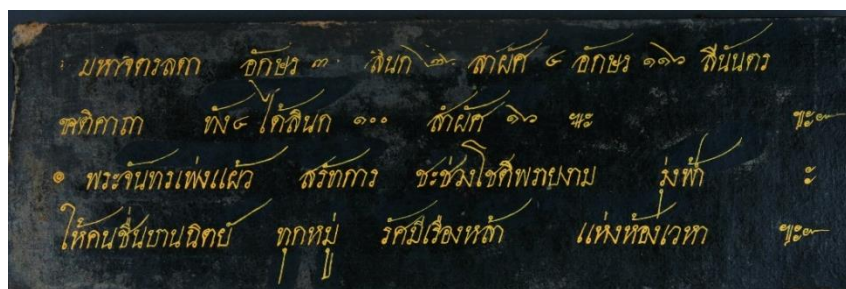 มหาจตรลดา อักษร ๓ สินก ๘ สำผัศ ๔ อักษร ๑๑๖ สีนันทร
ชตติคาถา ทัง๔ ได้สินก ๑๐๐ สำผัศ ๑๖ ๚ะ ๚ะ๛
๏ พระจันทรเพ่งแผ้ว สรัทการ ชะช่วงโชติพรายงาม รุ่งฟ้า ะ
ให้คนชื่นบานนิตย์ ทุกหมู่ รัศมีเรืองหล้า แห่งห้องเวหา ๚ะ๛